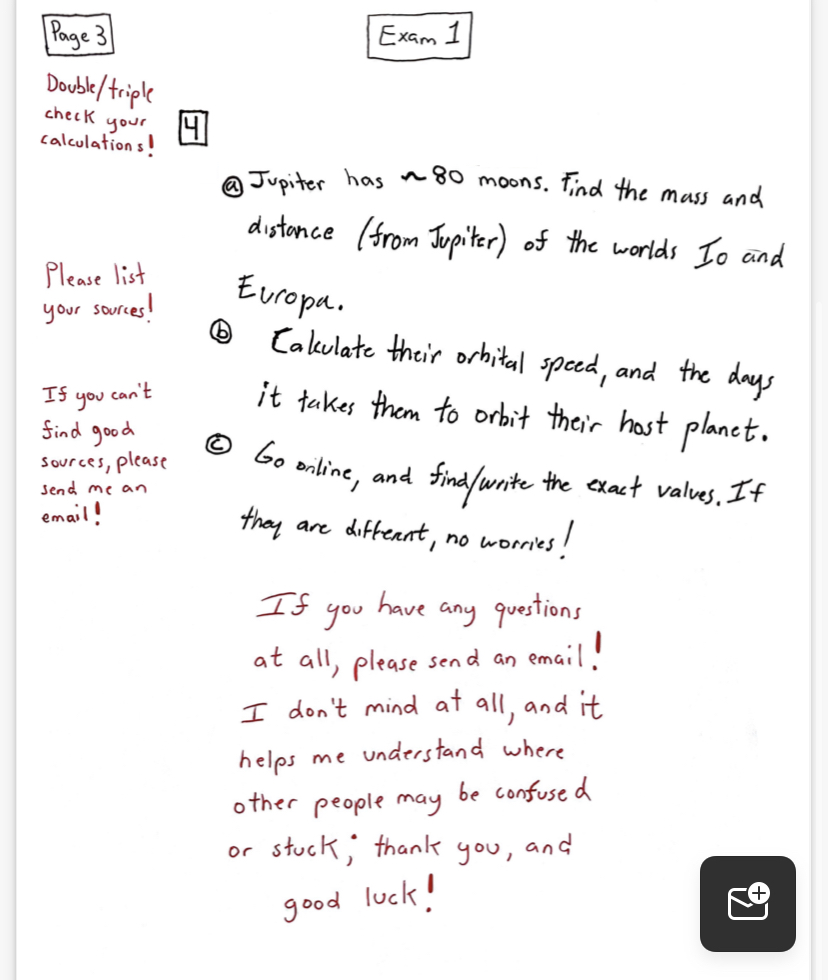 Page 3
Exam 1
Double/triple
check your
calculations!
4
a Jupiter has ~80 moons. Find the mass and
distance (from Jupiter) of the worlds Io and
Europa.
Please list
your sources!
b Calculate their orbital speed, and the days
it takes them to orbit their host planet.
If you can't
find good
sources, please
send me an
email!
c Go online, and find/write the exact values. If
they are different, no worries!
If you have any questions
at all, please send an email!
I don't mind at all, and it
helps me understand where
other people may be confused
or stuck; thank you, and
good luck!